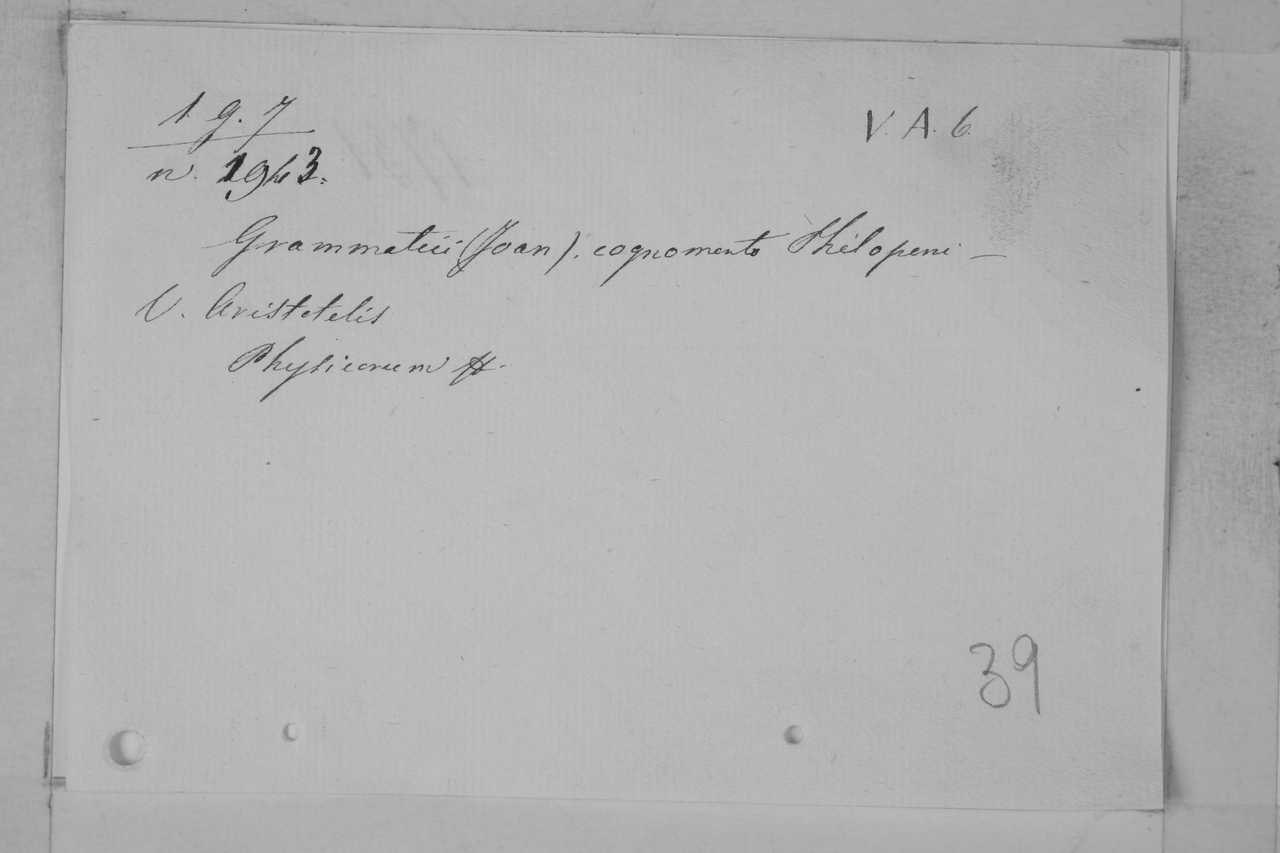 1. g. 7
V. A. 6
n. 1943.
Grammatici (Joan). cognomento Philoponi —
V. Aristotelis
Physicorum
39